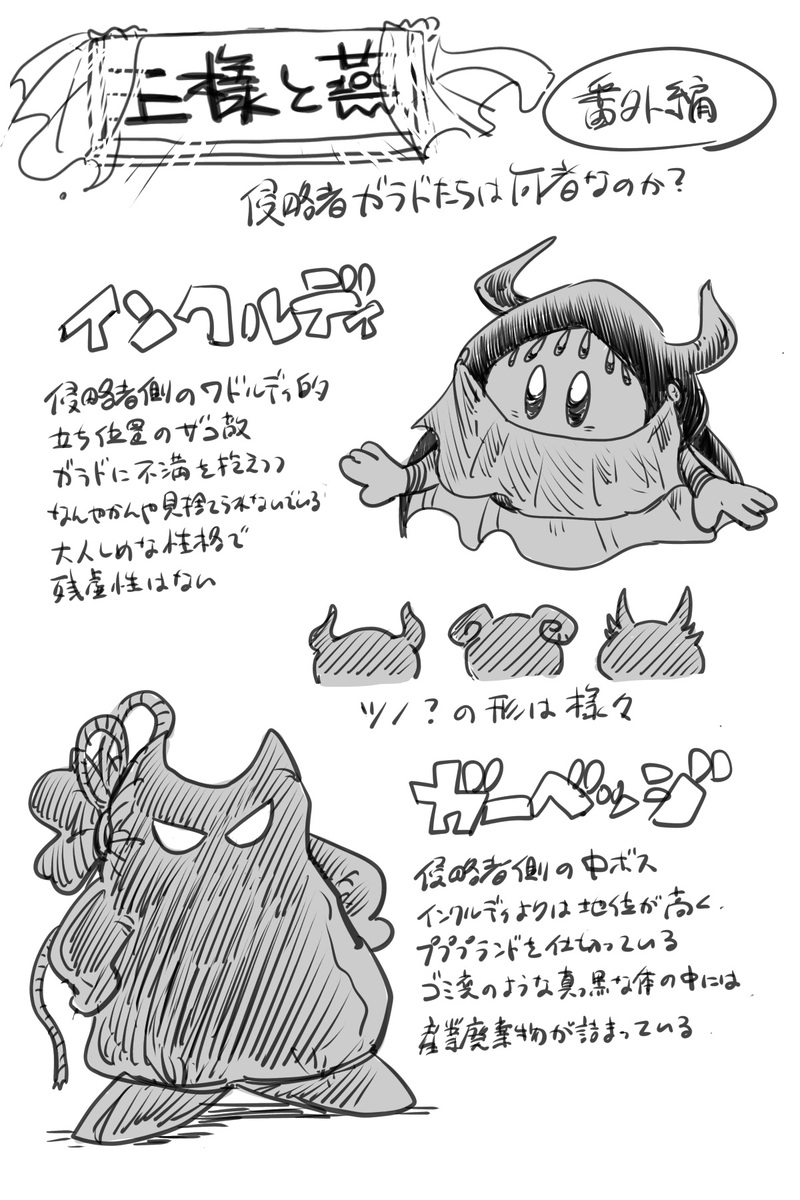 王様と燕
番外編
侵略者ガラドたちは何者なのか?
インクルディ
侵略者側のワドルディ的
立ち位置のザコ敵
ガラドに不満を抱えつつ
なんやかんや見捨てられないでいる
大人しめな性格で
残虐性はない
ツノ?の形は様々
ガーベッジ
侵略者側の中ボス
インクルディよりは地位が高く、
プププランドを仕切っている
ゴミ袋のような真っ黒な体の中には
産業廃棄物が詰まっている